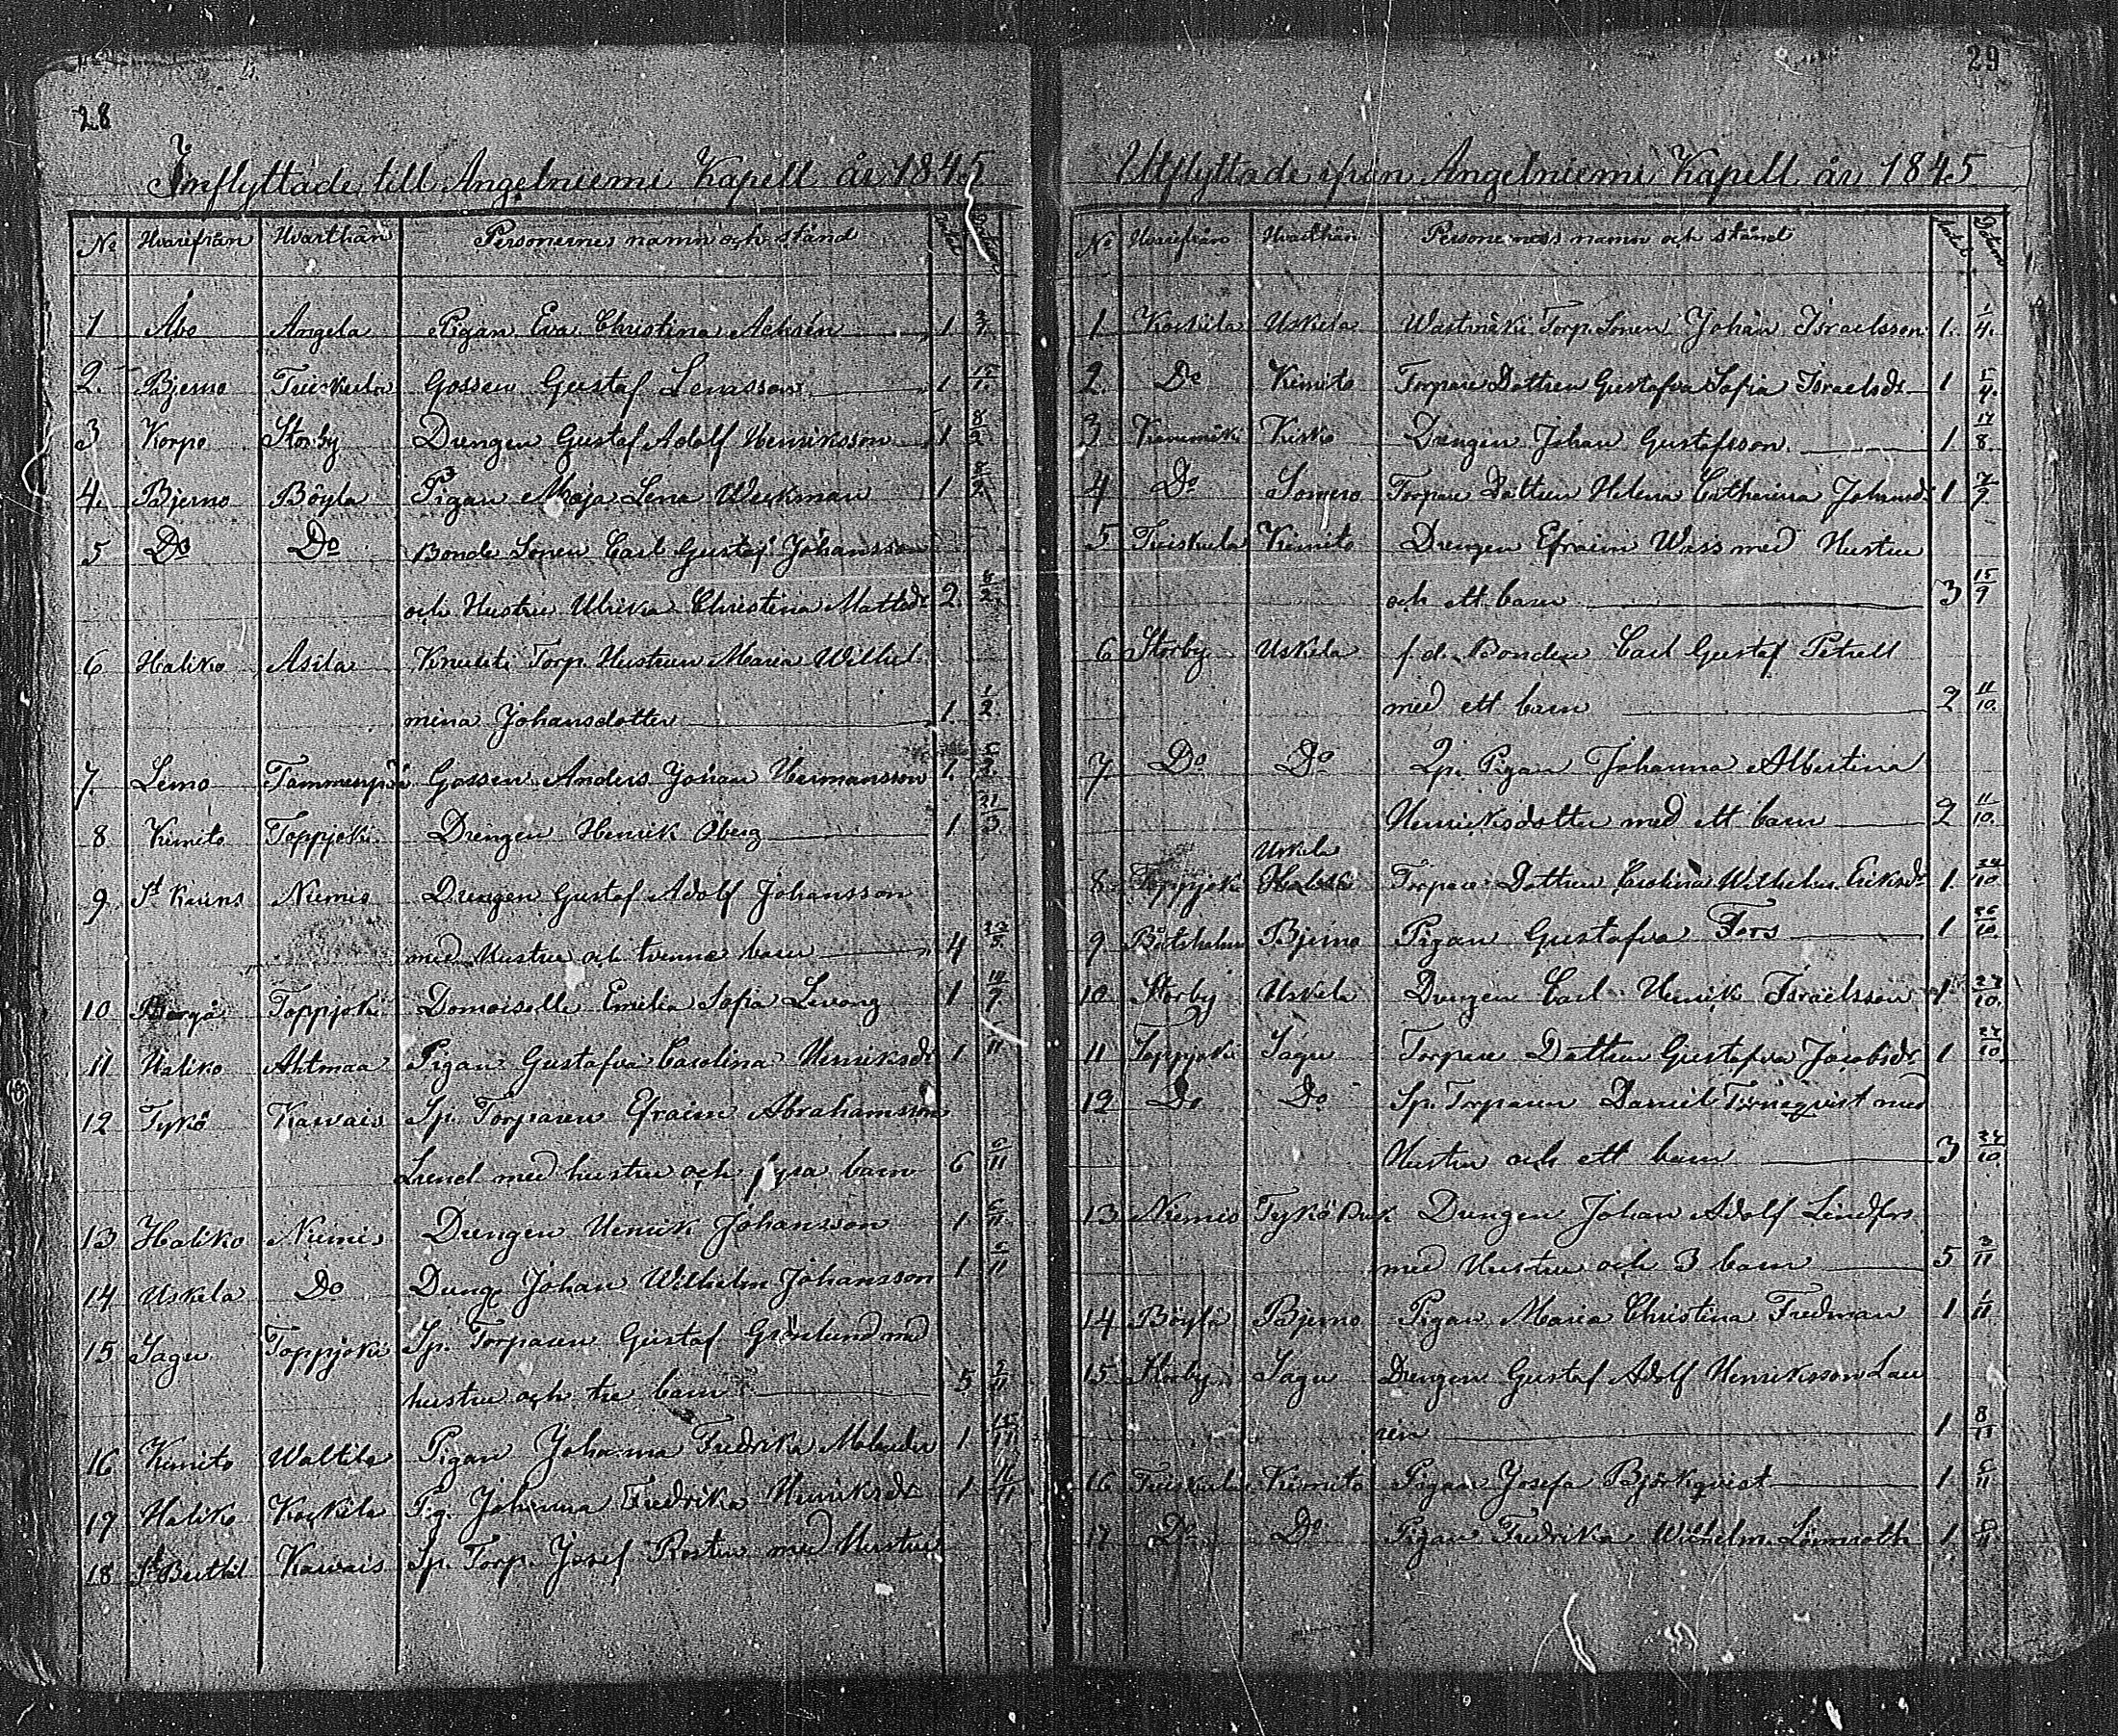 28
Inflyttade till Angelniemi Kapell år 1845
No Hvarifrån Hvarthän Personernes namn och stånd Antal Datum
1 Åbo Angela Pigan Eva Christina Achsén 1
2. Bjerno Truskula Gossen Gustaf Lenasson 1 15/1.
3 Korpo Storby Drengen Gustaf Adolf Henriksson 1 8/2
4. Bjerno Böyla Pigan Maja Lena Weckman 1 8/2
5 Do Do Bonde Sonen Carl Gustaf Johansson
och Hustru Ulrika Christina Mattsdr 2 8/2.
6 Haliko Asila Knuuti Torp. Hustrun Maria Wilhel
mina Johansdotter 1. 1/2.
7. Lemo Tammenpää Gossen Anders Johan Hermansson 1.
8 Kimito Toppjoki Drengen Henrik Öberg 1 21/3.
9 St Karins Niemis Drengen Gustaf Adolf Johansson
med Hustru och tvenne barn 4
10 Borgå Toppjoki Domoiselle Emelia Sofia Levong 1
11 Haliko Ahtmaa Pigan Gustafva Carolina Henriksdr 1
12 Tykö Kawais Sp. Torparen Efraim Abrahamsson
Lund med hustru och fyra barn 6 6/11
13 Haliko Niemis Drengen Henrik Johansson 1 6/11
14 Uskela Do Dreng Johan Wilhelm Johansson 1 6/11
15 Sagu Toppjoki Sp. Torparen Gustaf Grönlund med
hustru och tre barn 5 2/11
16 Kimito Waltila Pigan Johanna Fredrika Molander 1
19 Haliko Koskila Pig. Johanna Fredrika Henriksdr 1
18 St Berthil Kawais Sp. Torp. Josef Rosten med Hustru
29
Utflyttade ifrån Angelniemi Kapell år 1845
No Hvarifrån Hvarthän Personernes namn och stånd Antal Datum
1 Koskila Uskela Wastmäki Torp. Sonen Johan Israelsson 1. 1/4.
2 Do Kimito Torpare Dottren Gustafva Sofia Israelsdr 1 5/4.
3 Kisko Drengen Johan Gustafsson 1 17/8.
4 Do Somero Torpare Dottren Helena Catharina Johansdr 1 7/9
5 Truiskula Kimito Drengen Efraim Wass med Hustru
och ett barn 3 15/9
6 Storby Uskela f.d. Bonden Carl Gustaf Petrell
med ett barn 2 11/10.
7. Do Do Qp. Pigan Johanna Albertina
Henriksdotter med ett barn 2 11/10.
Uskela
8 Toppjoki Haliko Torpare Dottren Carolina Wilhelm. Eriksdr 1. 24/10
9 Båtsholm Bjerno Pigan Gustafva Fors 1 26/10.
10 Storby Uskela Drengen Carl Henrik Israelsson 1 27/10.
11 Toppjoki Sagu Torpare Dottren Gustafva Jacobsdr 1 27/10.
12 Do Do Sp. Torparen Daniel Törnqvist med
Hustru och ett barn 3 27/10.
13 Niemis Tykö Bruk Drengen Johan Adolf Lindfors
med Hustru och 3 barn 5 3/11
14 Böyla Bjerno Pigan Maria Christina Fredman 1
15 Storby Sagu Drengen Gustaf Adolf Henriksson Lau
rén 1 8/11
16 Truiskula Kimito Pigan Josefa Björkqvist 1
17 Do Do Pigan Fredrika Wilhelm. Lönnroth 1